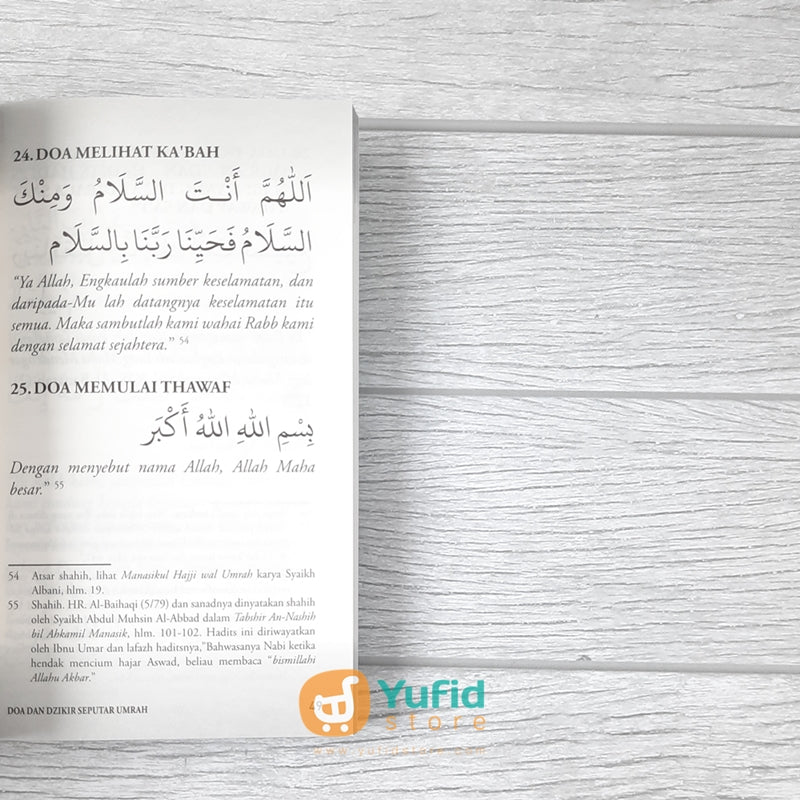 24. DOA MELIHAT KA'BAH
اَللّٰهُمَّ أَنْتَ السَّلَامُ وَمِنْكَ
السَّلَامُ فَحَيِّنَا رَبَّنَا بِالسَّلَام
“Ya Allah, Engkaulah sumber keselamatan, dan
daripada-Mu lah datangnya keselamatan itu
semua. Maka sambutlah kami wahai Rabb kami
dengan selamat sejahtera.” 54
25. DOA MEMULAI THAWAF
بِسْمِ اللهِ اللهُ أَكْبَر
Dengan menyebut nama Allah, Allah Maha
besar.” 55
54 Atsar shahih, lihat Manasikul Hajji wal Umrah karya Syaikh
Albani, hlm. 19.
55 Shahih. HR. Al-Baihaqi (5/79) dan sanadnya dinyatakan shahih
oleh Syaikh Abdul Muhsin Al-Abbad dalam Tabshir An-Nashih
bil Ahkamil Manasik, hlm. 101-102. Hadits ini diriwayatkan
oleh Ibnu Umar dan lafazh haditsnya,"Bahwasanya Nabi ketika
hendak mencium hajar Aswad, beliau membaca “bismillahi
Allahu Akbar.”
DOA DAN DZIKIR SEPUTAR UMRAH
49
Yufid
store
www.yufidstore.com